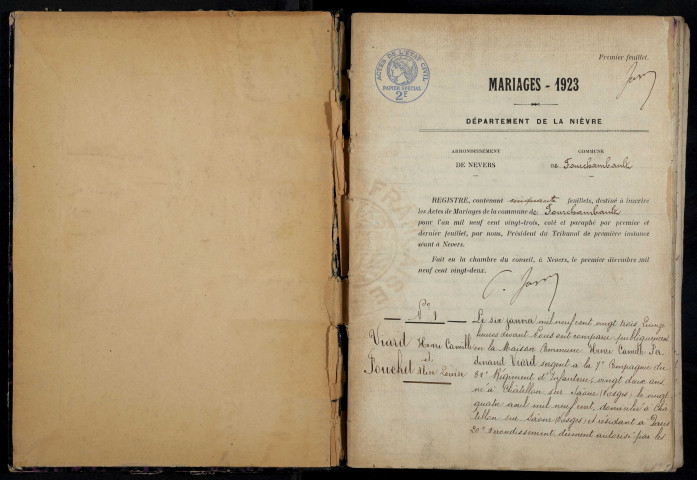 Premier feuillet.
ACTES DE L'ETAT CIVIL
PAPIER SPECIAL
2F
MARIAGES - 1923
DÉPARTEMENT DE LA NIÈVRE
ARRONDISSEMENT
DE NEVERS
COMMUNE
DE Fourchambault
REGISTRE, contenant cinquante feuillets, destiné à inscrire
les Actes de Mariages de la commune de Fourchambault
pour l'an mil neuf cent vingt-trois, coté et paraphé par premier et
dernier feuillet, par nous, Président du Tribunal de première instance
séant à Nevers.
Fait en la chambre du conseil, à Nevers, le premier décembre mil
neuf cent vingt-deux.
No 1
Viard Henri Camille
et
Pouchet
Le six janvier mil neuf cent vingt trois, à onze
heures devant Nous ont comparu publiquement
en la Maison Commune Henri Camille Fer
dinand Viard sergent à la 7e Compagnie du
Régiment d'Infanterie, vingt deux ans
né à Châtillon sur Saône (Vosges) le vingt
quatre avril mil neuf cent, domicilié à Châ
tillon sur Saône (Vosges) et résidant à Paris
20e arrondissement, dûment autorisé par les